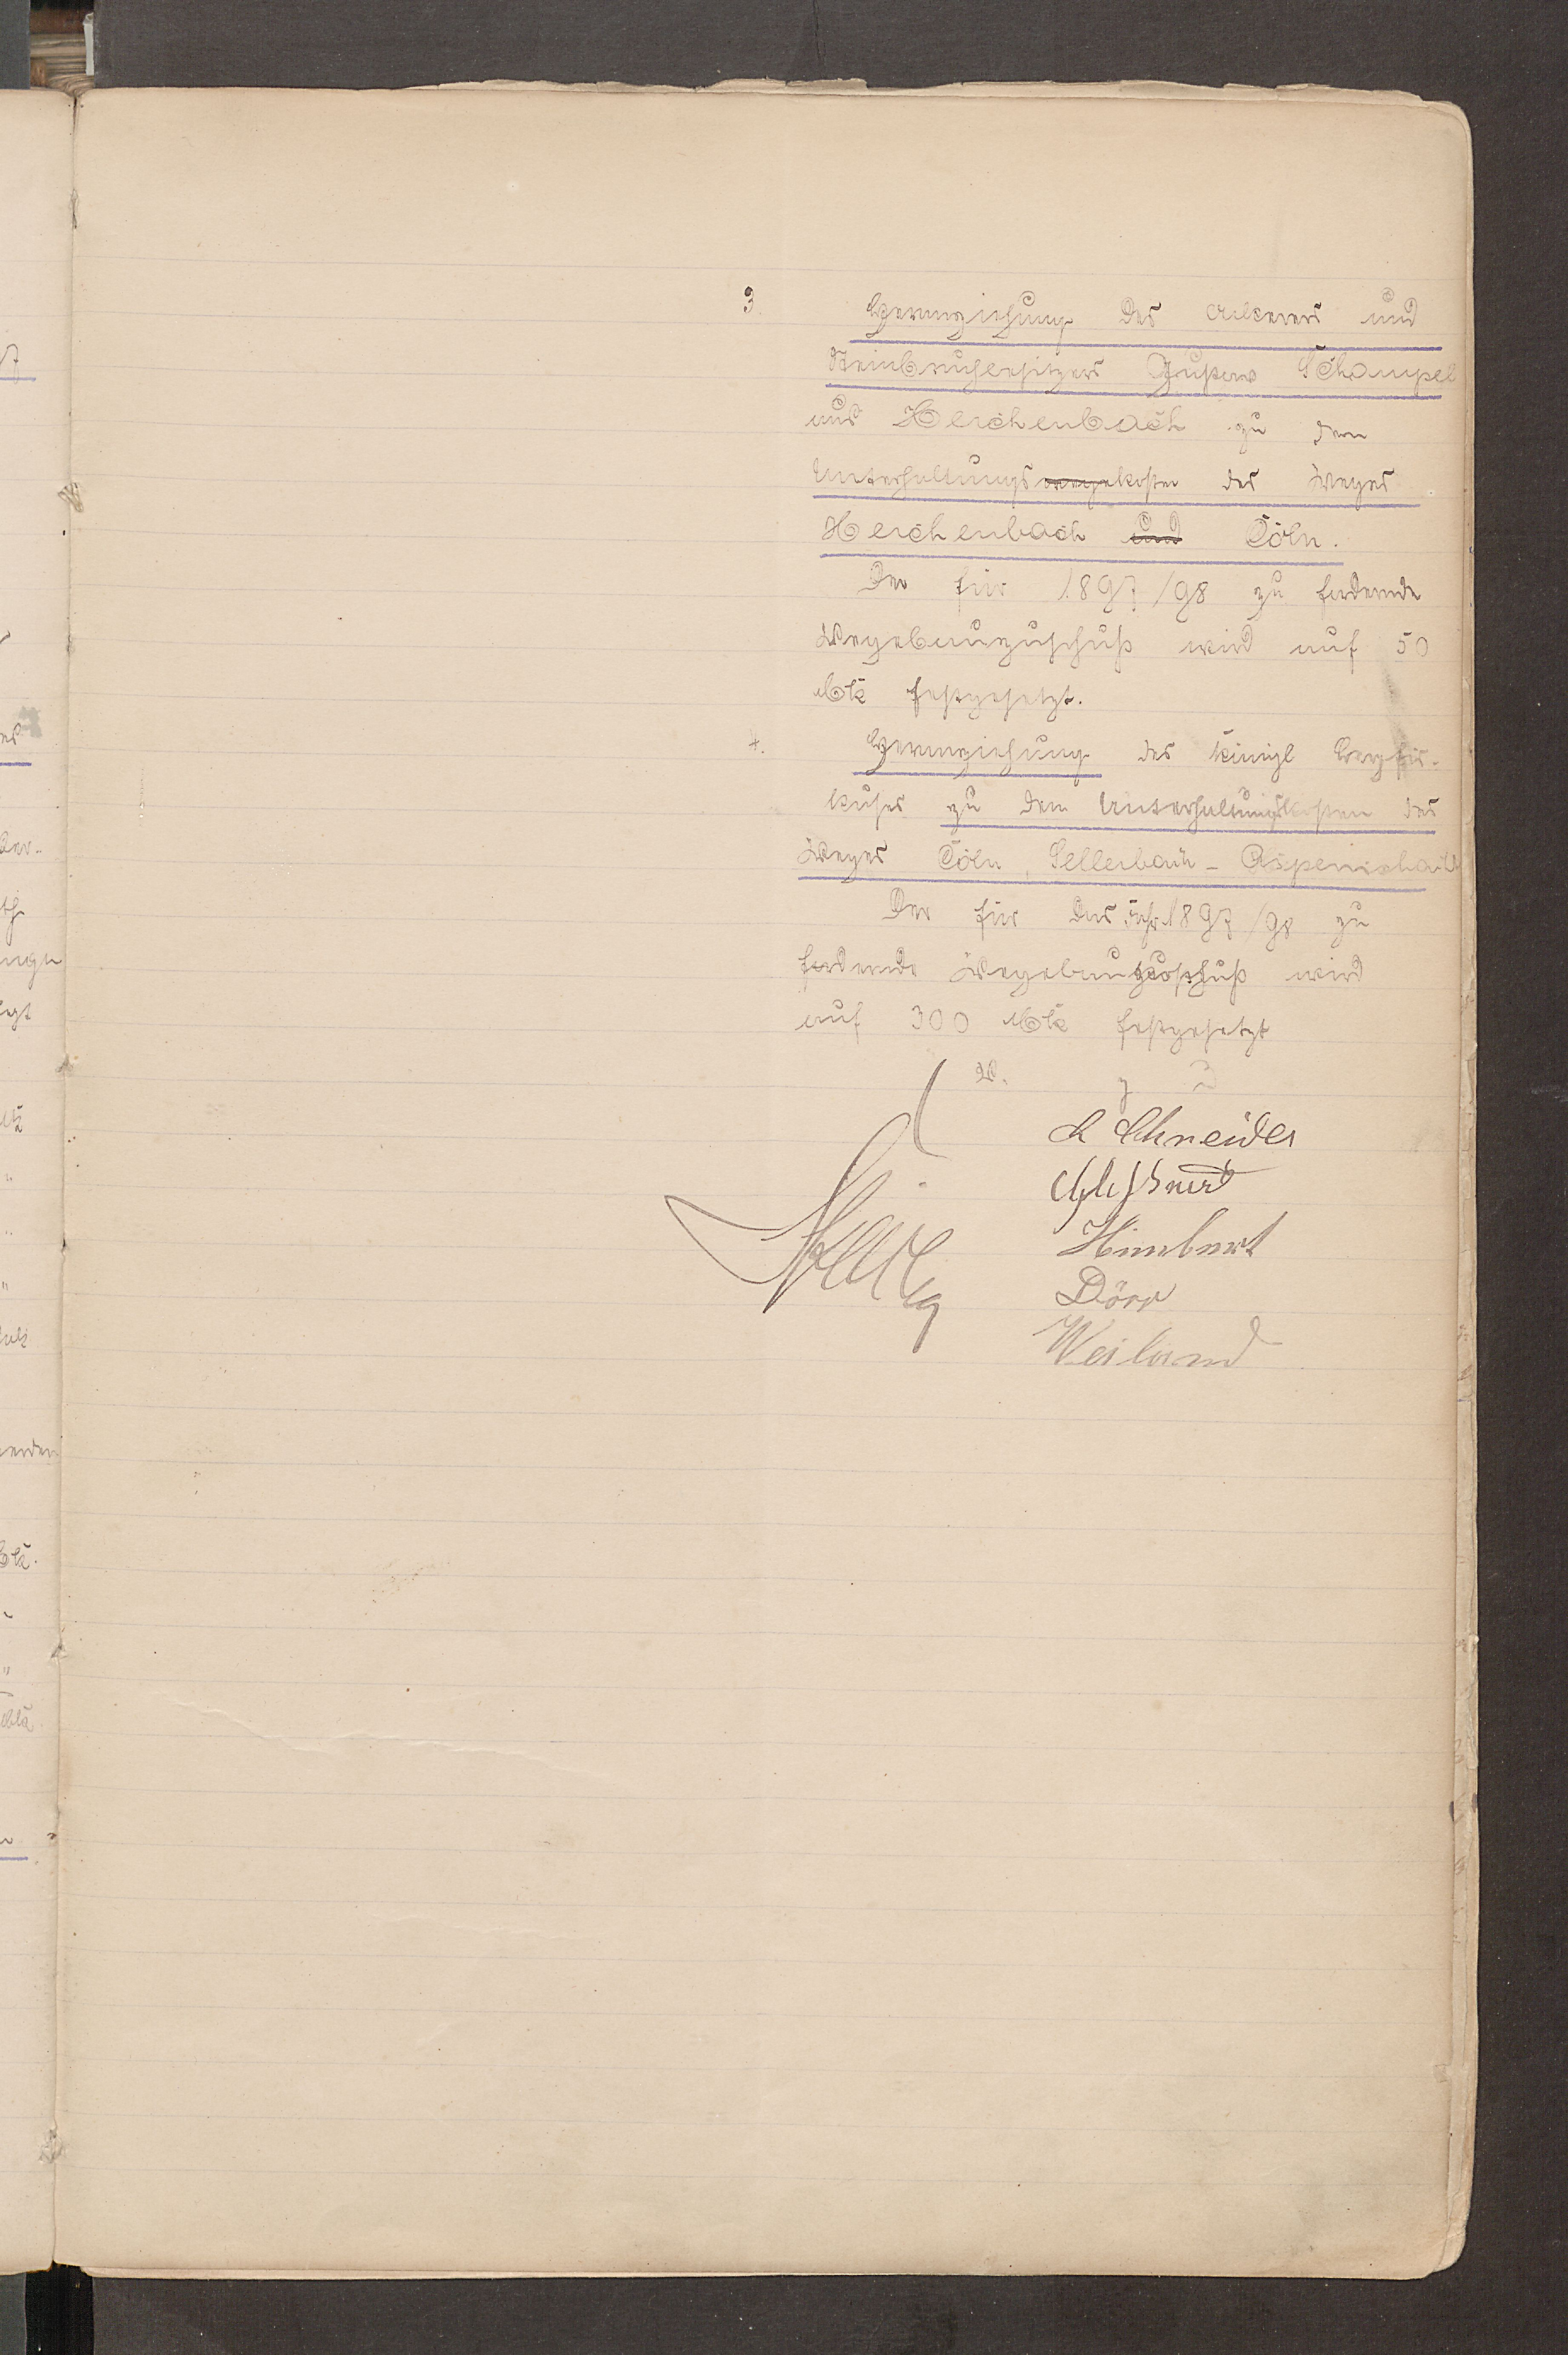 3. Heranziehung des Ackerers und
Steinbruchbesitzers Gustav Schampel
aus Herchenbach zu den
Unterhaltungswegekosten des Weges
Herchenbach und Cöln.
Der für 1897/98 zu fordernde
Wegebauzuschuß wird auf 50
Mk festgesetzt.
4. Heranziehung des Königl Bergfis-
kuses zu den Unterhaltungskosten des
Weges Cöln, Sellerbach-
Der für das Jahr 1897/98 zu
fordernde Wegebauzuschuß wird
auf 300 Mk festgesetzt
v. g u
Schneider
Himbert
Dörr
Weiland